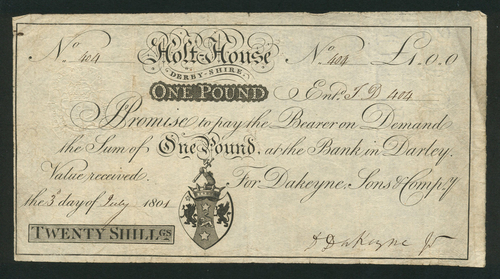 No 404 Holt-House No 404 £1.0.0
DERBY-SHIRE
ONE POUND Entd. J D 404
I Promise to pay the Bearer on Demand
the Sum of One Pound. at the Bank in Darley.
Value received. For Dakeyne, Sons & Compy
the 3d day of July 1801
TWENTY SHILLGS. Dakeyne Jr